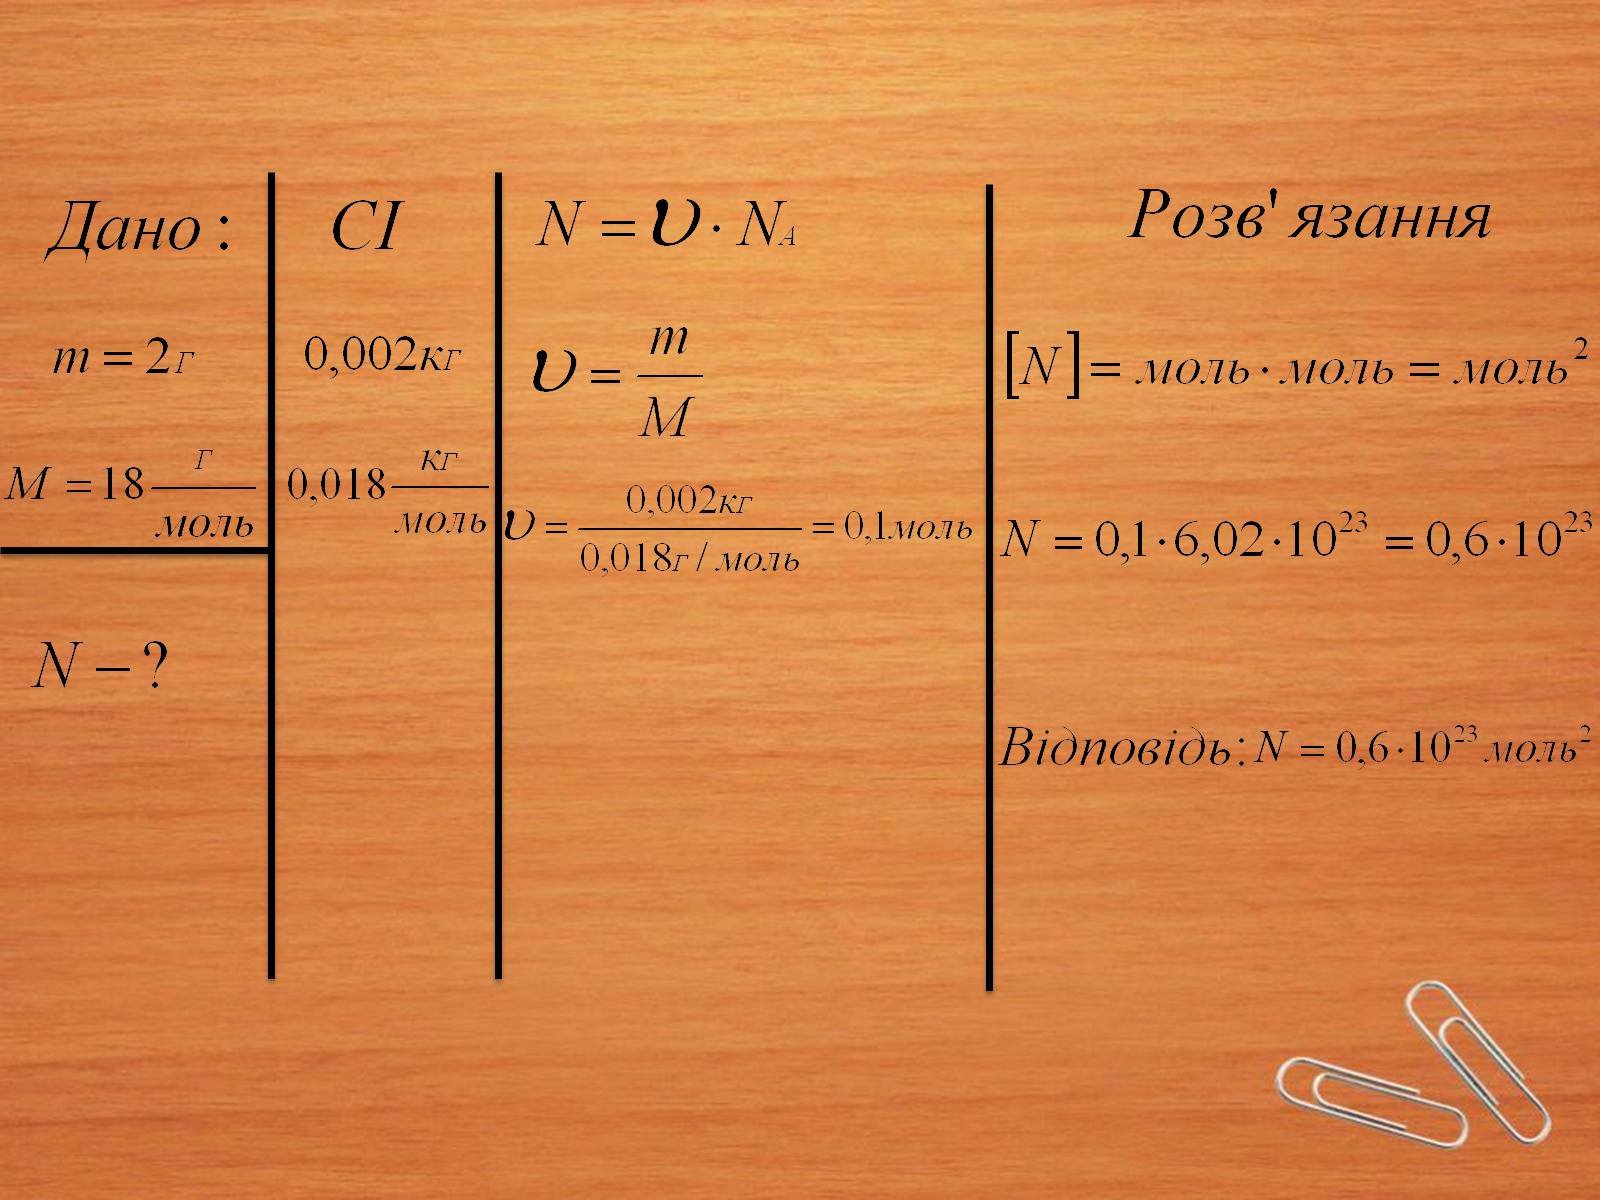 Дано:
m = 2г
M = 18 г/моль
N – ?
СІ
0,002кг
0,018 кг/моль
N = υ · N_A
υ = m/M
υ = 0,002кг / 0,018г / моль = 0,1моль
Розв'язання
[N] = моль · моль = моль²
N = 0,1·6,02·10²³ = 0,6·10²³
Відповідь: N = 0,6·10²³ моль²